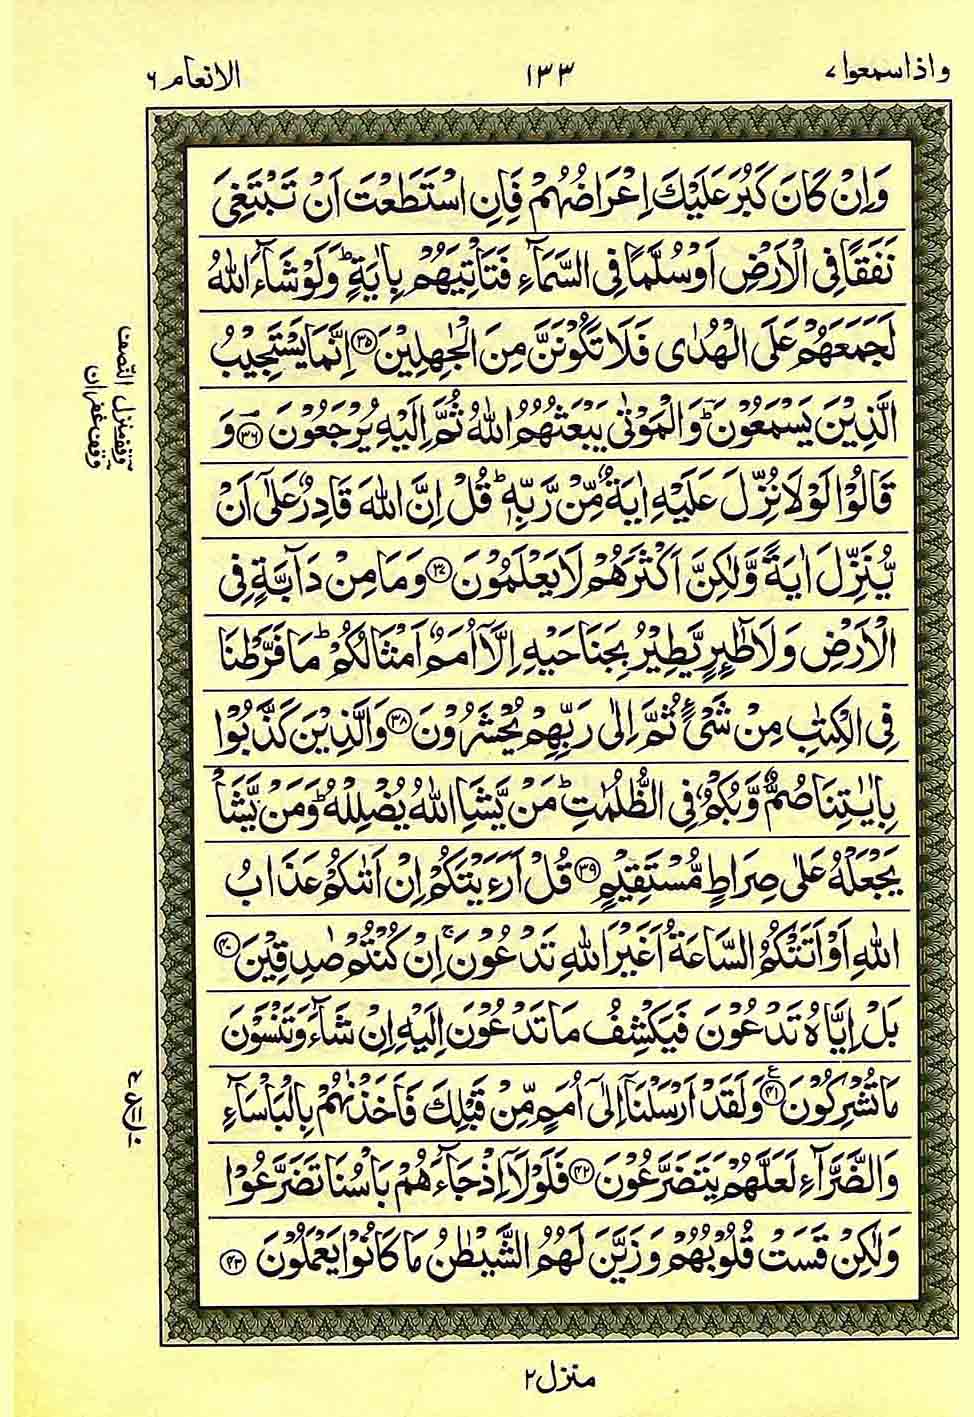 واذاسمعوا ٧
١٣٣
الانعام ٦
وَاِنْ كَانَ كَبُرَ عَلَيْكَ اِعْرَاضُهُمْ فَاِنِ اسْتَطَعْتَ اَنْ تَبْتَغِیَ
نَفَقًا فِی الْاَرْضِ اَوْ سُلَّمًا فِی السَّمَآءِ فَتَاْتِيَهُمْ بِاٰيَةٍ ؕ وَلَوْ شَآءَ اللّٰهُ
لَجَمَعَهُمْ عَلَی الْهُدٰی فَلَا تَكُوْنَنَّ مِنَ الْجٰهِلِيْنَ ﴿۳۵﴾ اِنَّمَا يَسْتَجِيْبُ
الَّذِيْنَ يَسْمَعُوْنَ ؕ وَالْمَوْتٰی يَبْعَثُهُمُ اللّٰهُ ثُمَّ اِلَيْهِ يُرْجَعُوْنَ ﴿۳۶﴾ وَ
قَالُوْا لَوْلَا نُزِّلَ عَلَيْهِ اٰيَةٌ مِّنْ رَّبِّهٖ ؕ قُلْ اِنَّ اللّٰهَ قَادِرٌ عَلٰۤی اَنْ
يُّنَزِّلَ اٰيَةً وَّلٰكِنَّ اَكْثَرَهُمْ لَا يَعْلَمُوْنَ ﴿۳۷﴾ وَمَا مِنْ دَآبَّةٍ فِی
الْاَرْضِ وَلَا طٰٓئِرٍ يَّطِيْرُ بِجَنَاحَيْهِ اِلَّاۤ اُمَمٌ اَمْثَالُكُمْ ؕ مَا فَرَّطْنَا
فِی الْكِتٰبِ مِنْ شَیْءٍ ثُمَّ اِلٰی رَبِّهِمْ يُحْشَرُوْنَ ﴿۳۸﴾ وَالَّذِيْنَ كَذَّبُوْا
بِاٰيٰتِنَا صُمٌّ وَّبُكْمٌ فِی الظُّلُمٰتِ ؕ مَنْ يَّشَاِ اللّٰهُ يُضْلِلْهُ ؕ وَمَنْ يَّشَاْ
يَجْعَلْهُ عَلٰی صِرَاطٍ مُّسْتَقِيْمٍ ﴿۳۹﴾ قُلْ اَرَءَيْتَكُمْ اِنْ اَتٰىكُمْ عَذَابُ
اللّٰهِ اَوْ اَتَتْكُمُ السَّاعَةُ اَغَيْرَ اللّٰهِ تَدْعُوْنَ ۚ اِنْ كُنْتُمْ صٰدِقِيْنَ ﴿۴۰﴾
بَلْ اِيَّاهُ تَدْعُوْنَ فَيَكْشِفُ مَا تَدْعُوْنَ اِلَيْهِ اِنْ شَآءَ وَتَنْسَوْنَ
مَا تُشْرِكُوْنَ ﴿۴۱﴾ ع وَلَقَدْ اَرْسَلْنَاۤ اِلٰۤی اُمَمٍ مِّنْ قَبْلِكَ فَاَخَذْنٰهُمْ بِالْبَاْسَآءِ
وَالضَّرَّآءِ لَعَلَّهُمْ يَتَضَرَّعُوْنَ ﴿۴۲﴾ فَلَوْلَاۤ اِذْ جَآءَهُمْ بَاْسُنَا تَضَرَّعُوْا
وَلٰكِنْ قَسَتْ قُلُوْبُهُمْ وَزَيَّنَ لَهُمُ الشَّيْطٰنُ مَا كَانُوْا يَعْمَلُوْنَ ﴿۴۳﴾
وقف منزل النصف
وقف غفران
منزل ٢